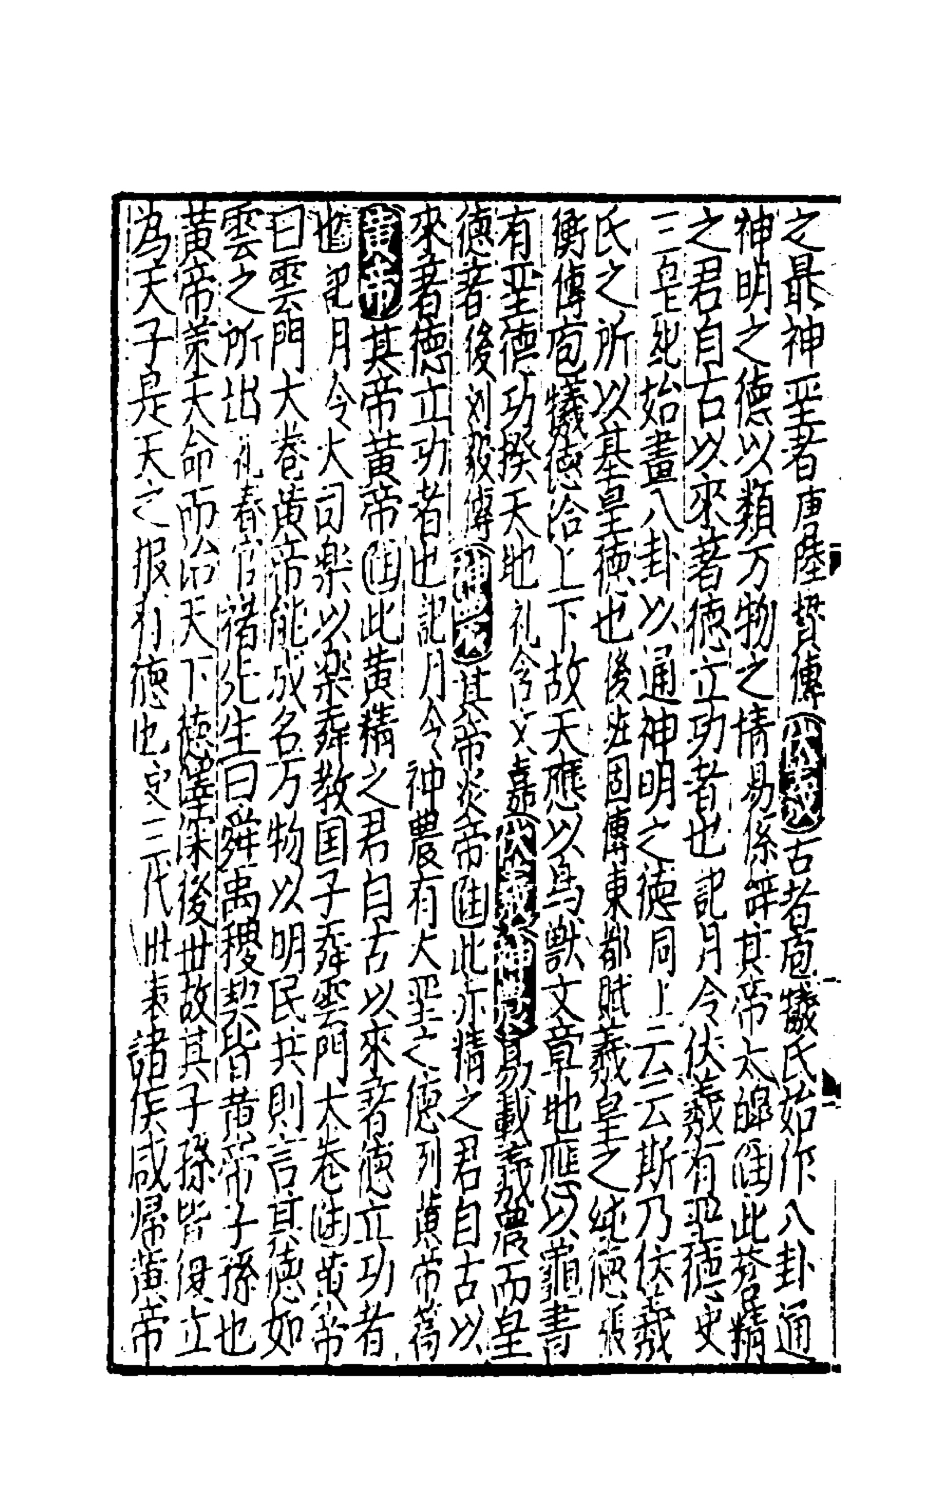 之最神圣者唐陸贄傳伏羲古者庖犧氏始作八卦通
神明之德以類万物之情易係辞其帝太皥注此蒼精
之君自古以來著德立功者也記月令伏羲有圣德史
三皇紀始畫八卦以通神明之德同上云云斯乃伏羲
氏之所以基皇德也後班固傳東都賦羲皇之純德張
衡傳庖犧德洽上下故天應以鳥獸文章地應以龜書
有圣德功揆天地礼含文嘉伏羲神農易載羲農而皇
德著後刘毅傳神農其帝炎帝注此赤精之君自古以
來著德立功者也記月令神農有大圣之德列黄帝篇
黄帝其帝黄帝注此黄精之君自古以來著德立功者
也記月令大司楽以楽舞教国子舞雲門大卷注黄帝
曰雲門大卷黄帝能成名万物以明民共則言其德如
雲之所出礼春官褚先生曰舜禹稷契皆黄帝子孫也
黄帝策天命而治天下德澤深後世故其子孫皆復立
為天子是天之报有德也史三代世表諸侯咸帰黄帝